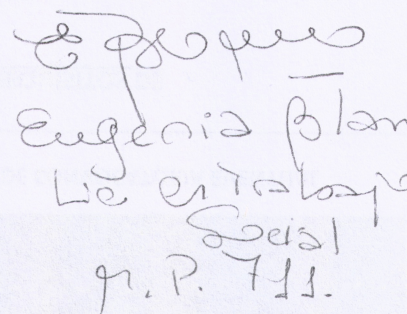 Eugenia Blan
Lic en Trabajo
Social
M.P. 711.